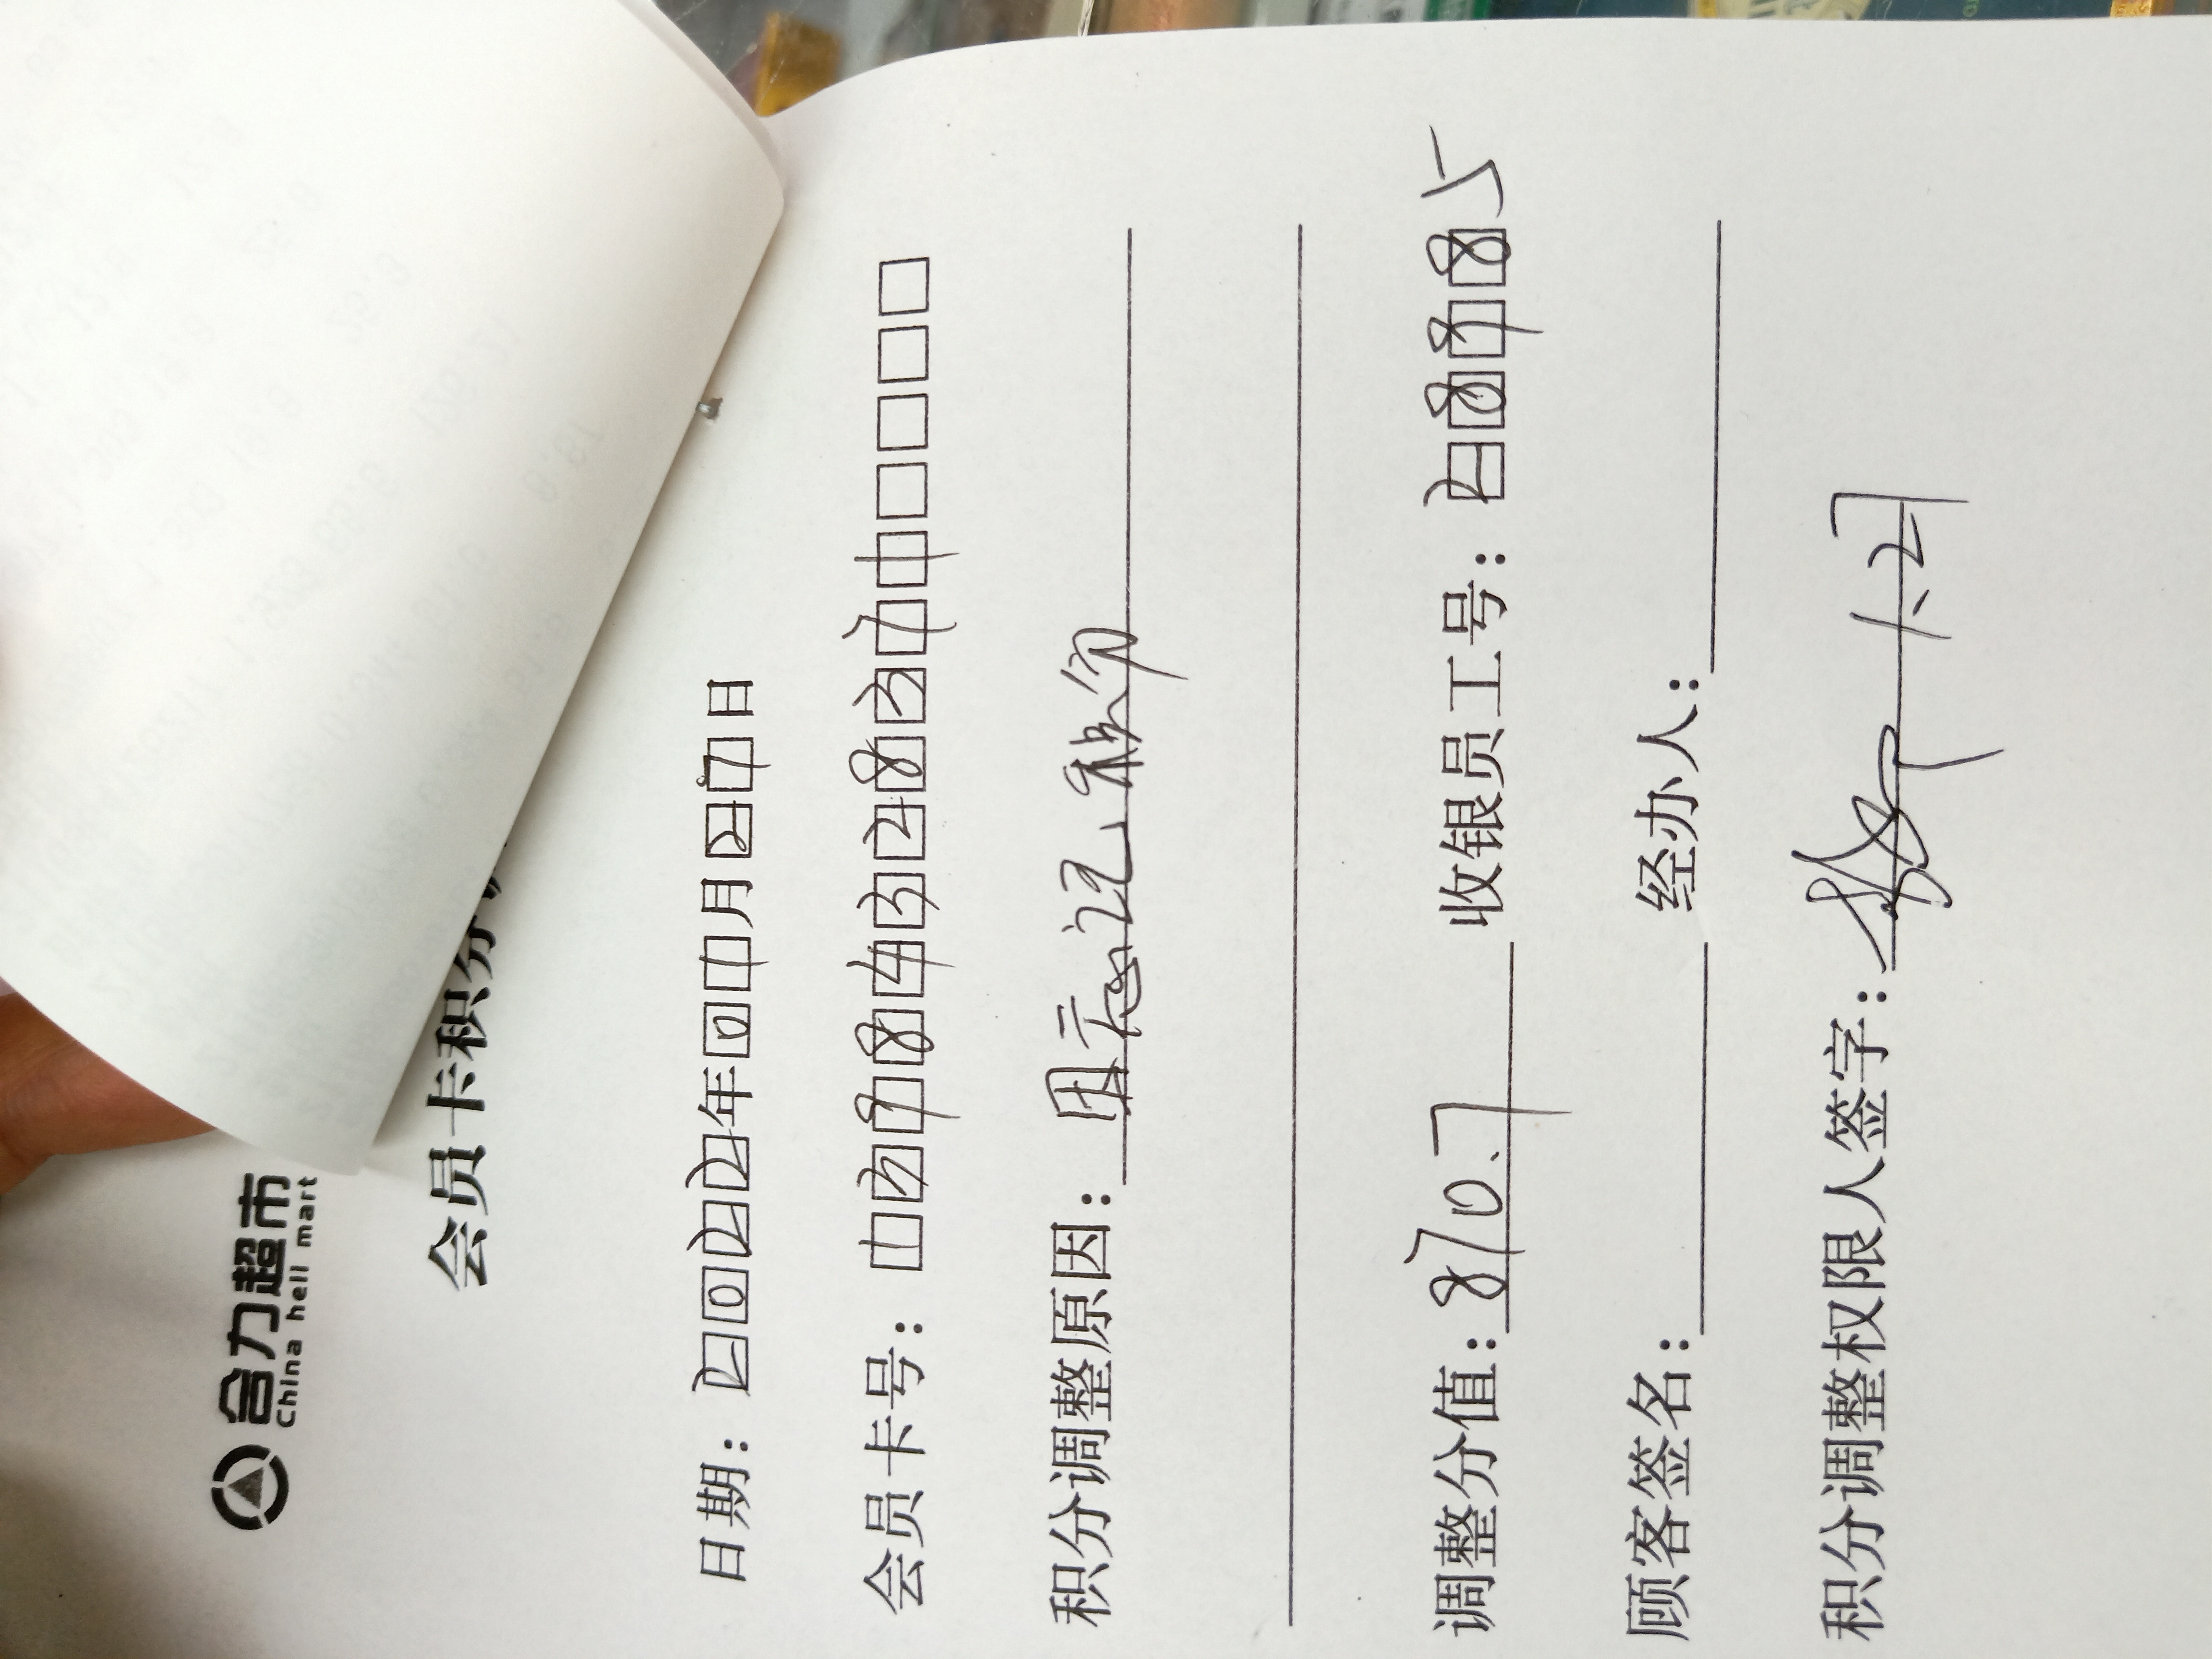 合力超市
China hell mart
会员卡积分
日期：2022年01月27日
会员卡号：13984328371
积分调整原因：因忘记积分
调整分值：870.7 收银员工号：28985
顾客签名： 经办人：
积分调整权限人签字： 1.27